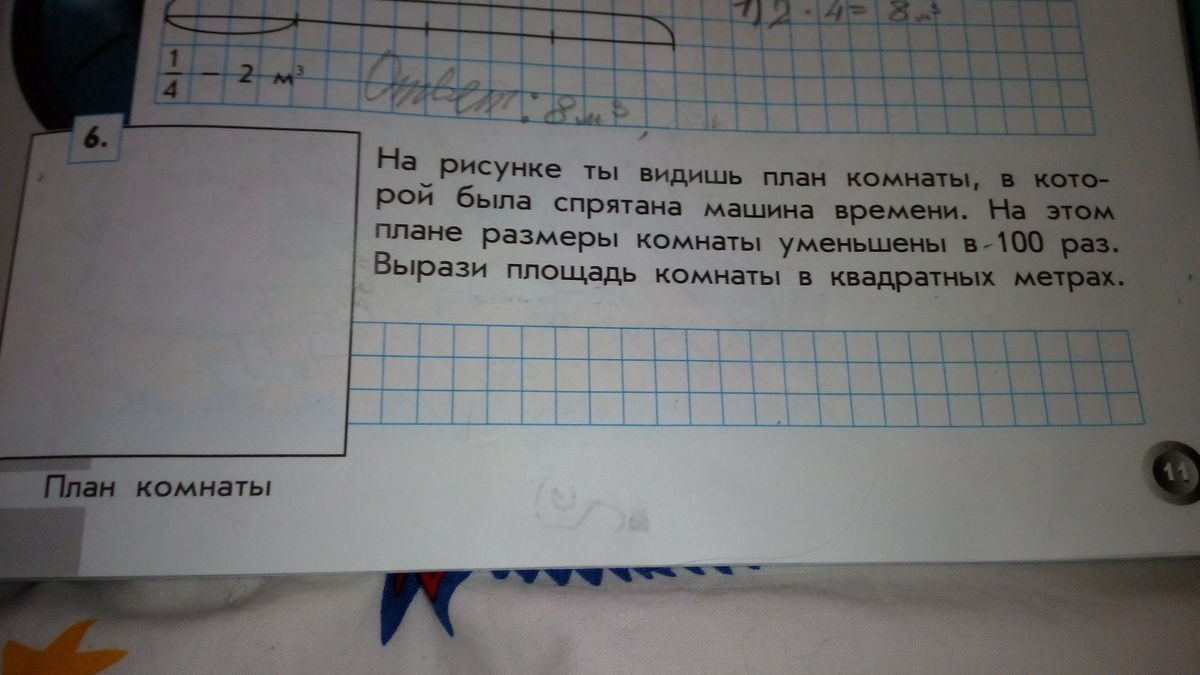 1) 2 · 4 = 8 м³
1/4 – 2 м³ Ответ: 8 м³
6.
На рисунке ты видишь план комнаты, в кото-
рой была спрятана машина времени. На этом
плане размеры комнаты уменьшены в 100 раз.
Вырази площадь комнаты в квадратных метрах.
План комнаты
11